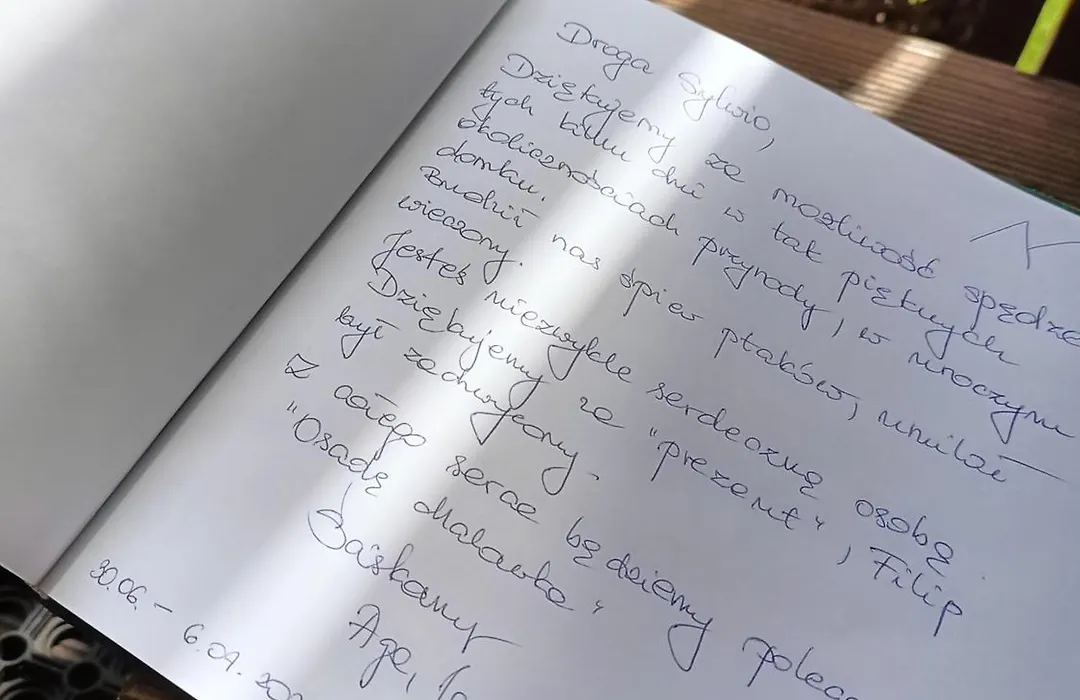 Droga Sylwio,
Dziękujemy za możliwość spędze
tych kilku dni w tak pięknych
okolicznościach przyrody, w uroczym
domku.
Budził nas śpiew ptaków, umilał
wieczory.
Jesteś niezwykle serdeczną osobą.
Dziękujemy za "prezent", Filip
był zachwycony.
Z całego serca będziemy polec
"Osadę
Ściskamy
Aga,
30.06. – 6.07. 20